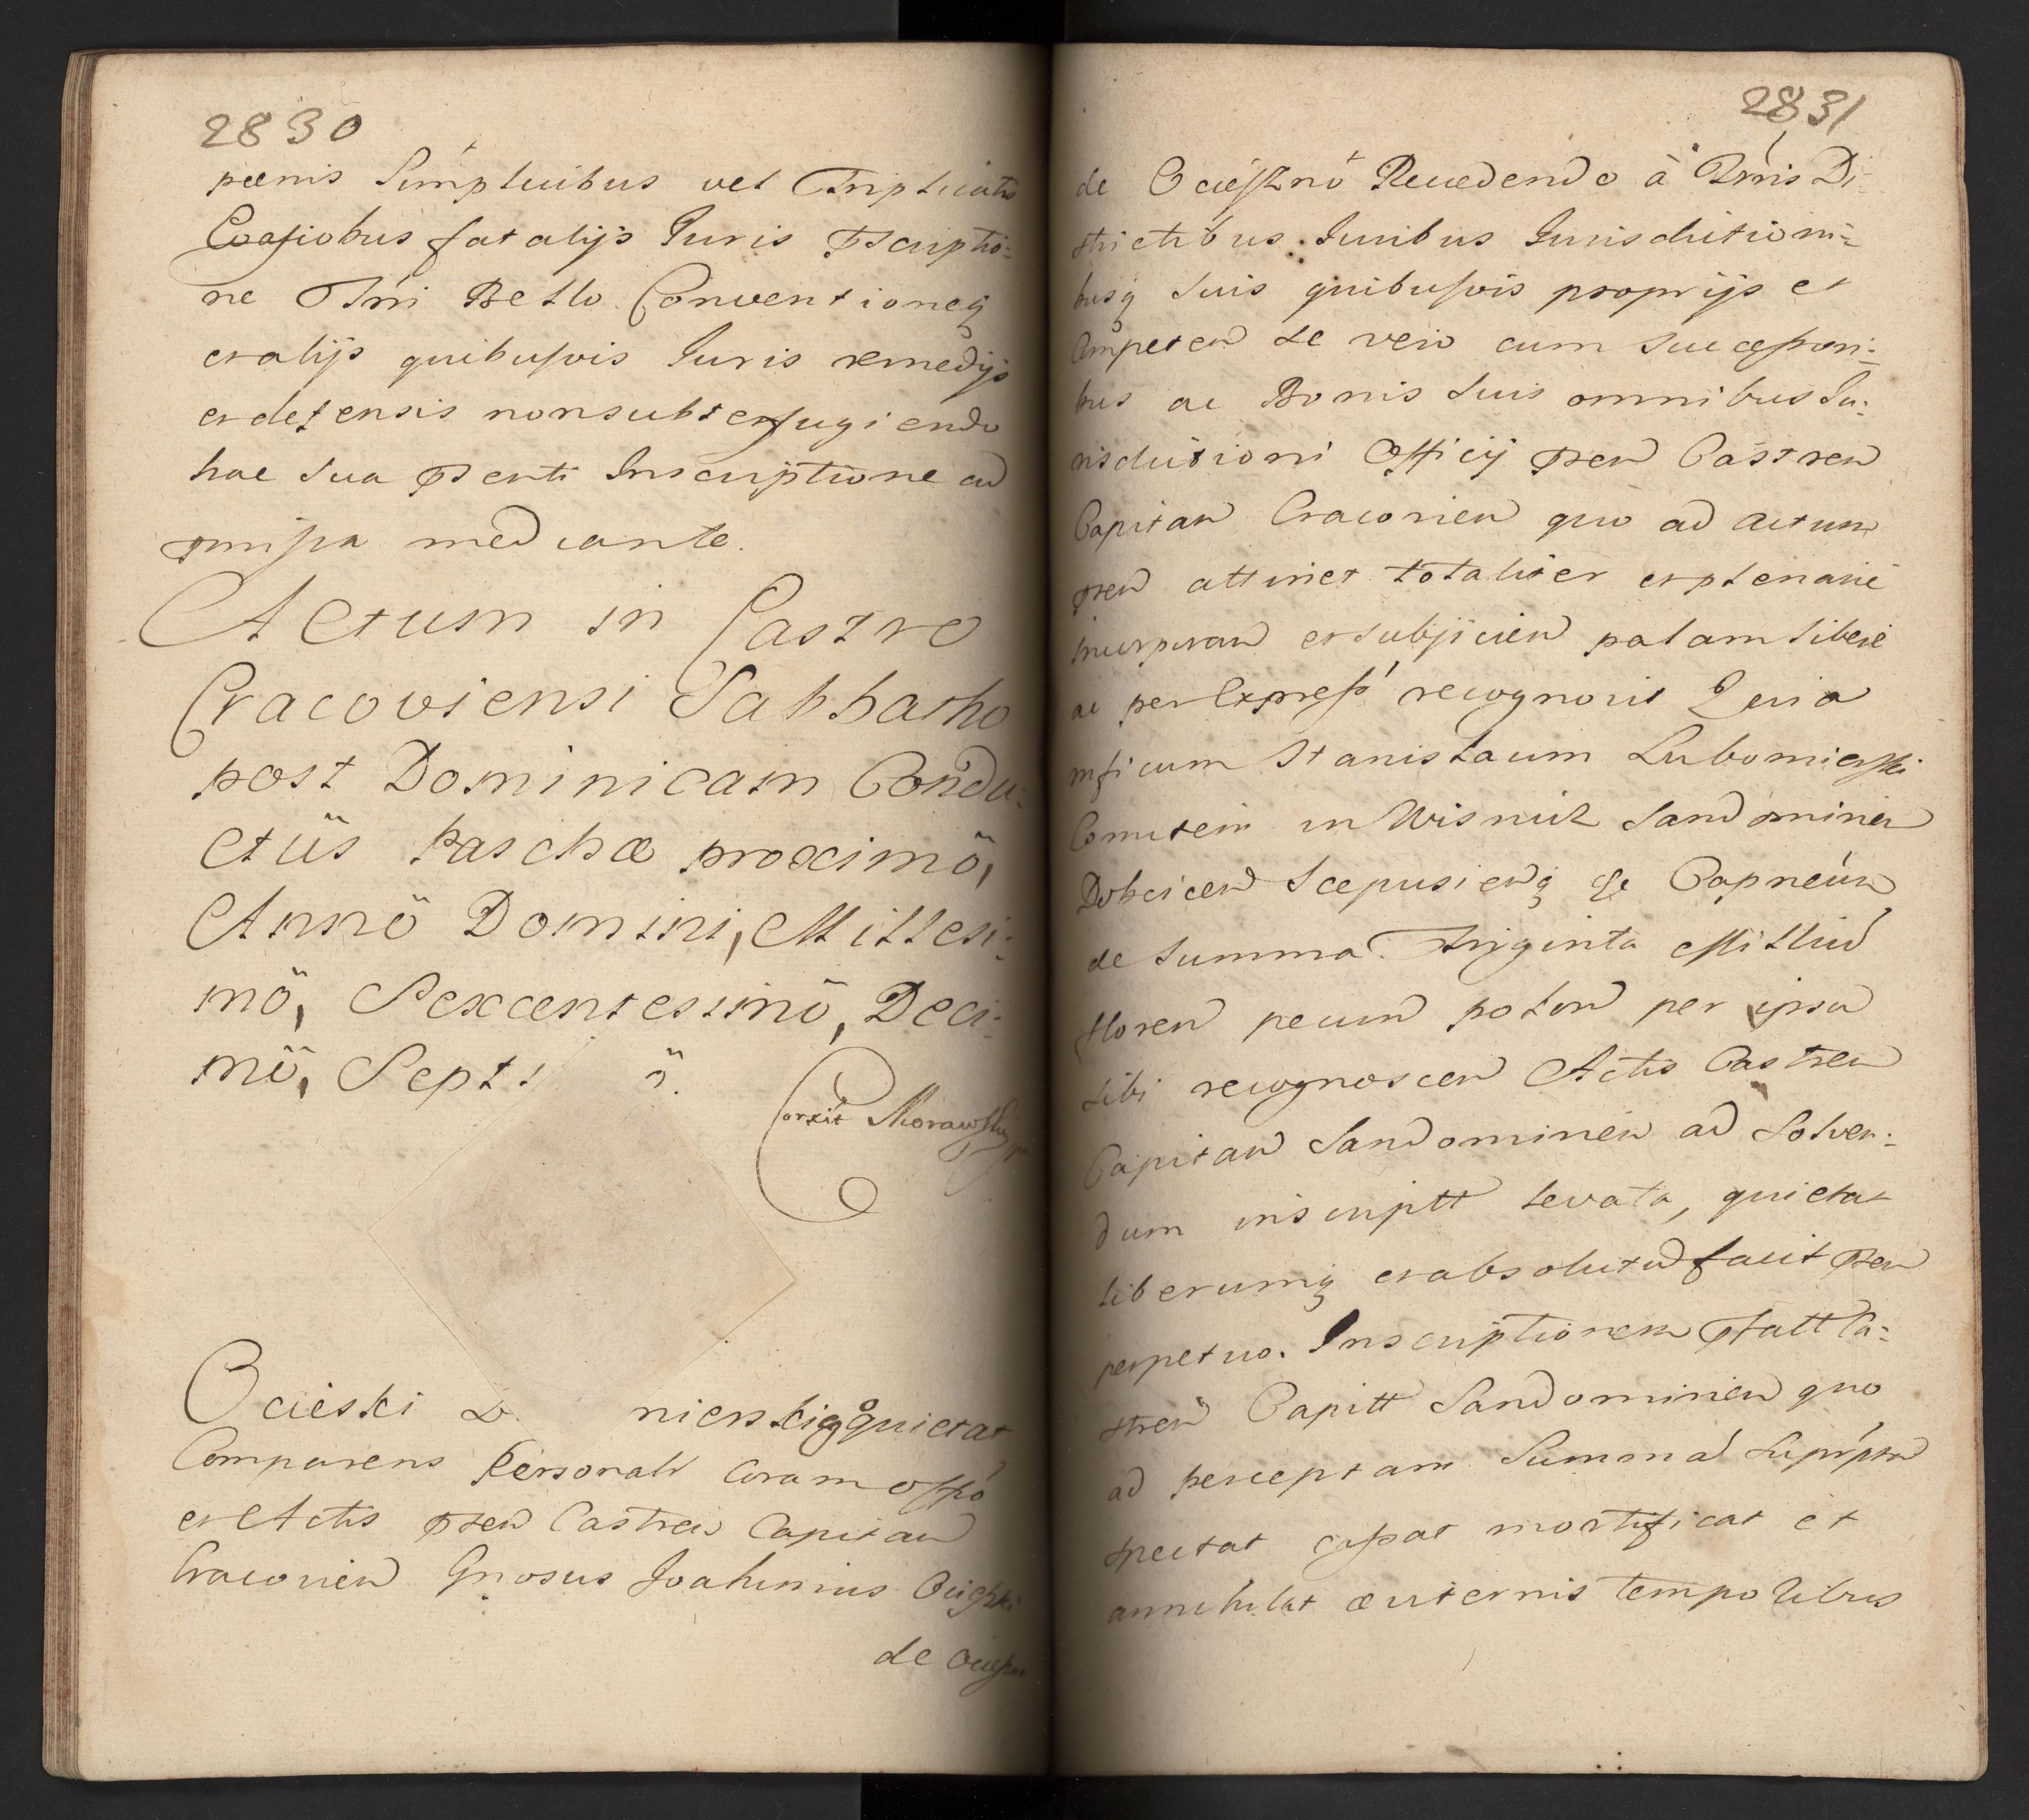 2830
pænis Simplicibus vel Triplicatis
Evasiobus fatalijs Iuris pscriptio-
ne Trri Bello Conventioneq
et alijs quibusvis Iuris remedijs
et defensis non subterfugiendo
hac sua psenti Inscriptione ad
pmissa mediante.
Actum in Castro
Cracoviensi Sabbatho
post Dominicam Condu-
ctûs Paschæ proximô,
Annô Domini, Millesi-
mô, Sexcentesimô, Deci-
mô, Septi ô.
Corxit Morawski
Ocieski L nierskigo quietat
Comparens Personalr Coram offo
et Actis psen Castren Capitan
Cracovien Gnosus Joahimus Ocieski
de Ociesz
2831
de Ocieszno Recedendo à Trris Di-
strictibus Iuribus Iurisdictioni-
busq suis quibusvis proprijs et
Competen se vero cum successori-
bus ac Bonis suis omnibus Iu-
risdictioni Officij psen Castren
Capitan Cracovien quo ad actum
psen attinet totaliter et plenarie
incorporan et subijcien palam libere
ac per Express recognovit Quia
mficum Stanislaum Lubomierski
Comitem in Wisnicz Sandomirien
Dobcicen Scepusienq &c Capneum
de Summa Triginta Milliu
floren pecun polon per ipsu
sibi recognoscen Actis Castren
Capitan Sandomirien ad Solven-
dum inscriptt levata, quietat
liberumq et absolutu facit psen
perpetuo. Inscriptionem pfatt Ca-
stren Capitt Sandomirien quo
ad perceptam Summa suprptm
spectat cassat mortificat et
annihilat æviternis temporibus